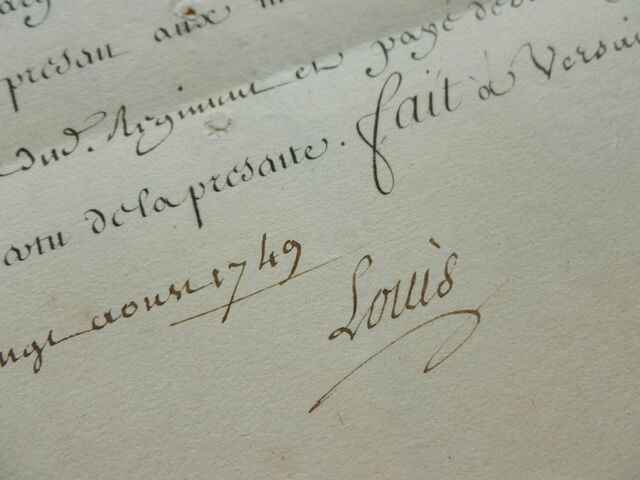 presan aux
dud. Regiment et payé de
vertu de la presante. fait à Versai
aoust 1749
Louis